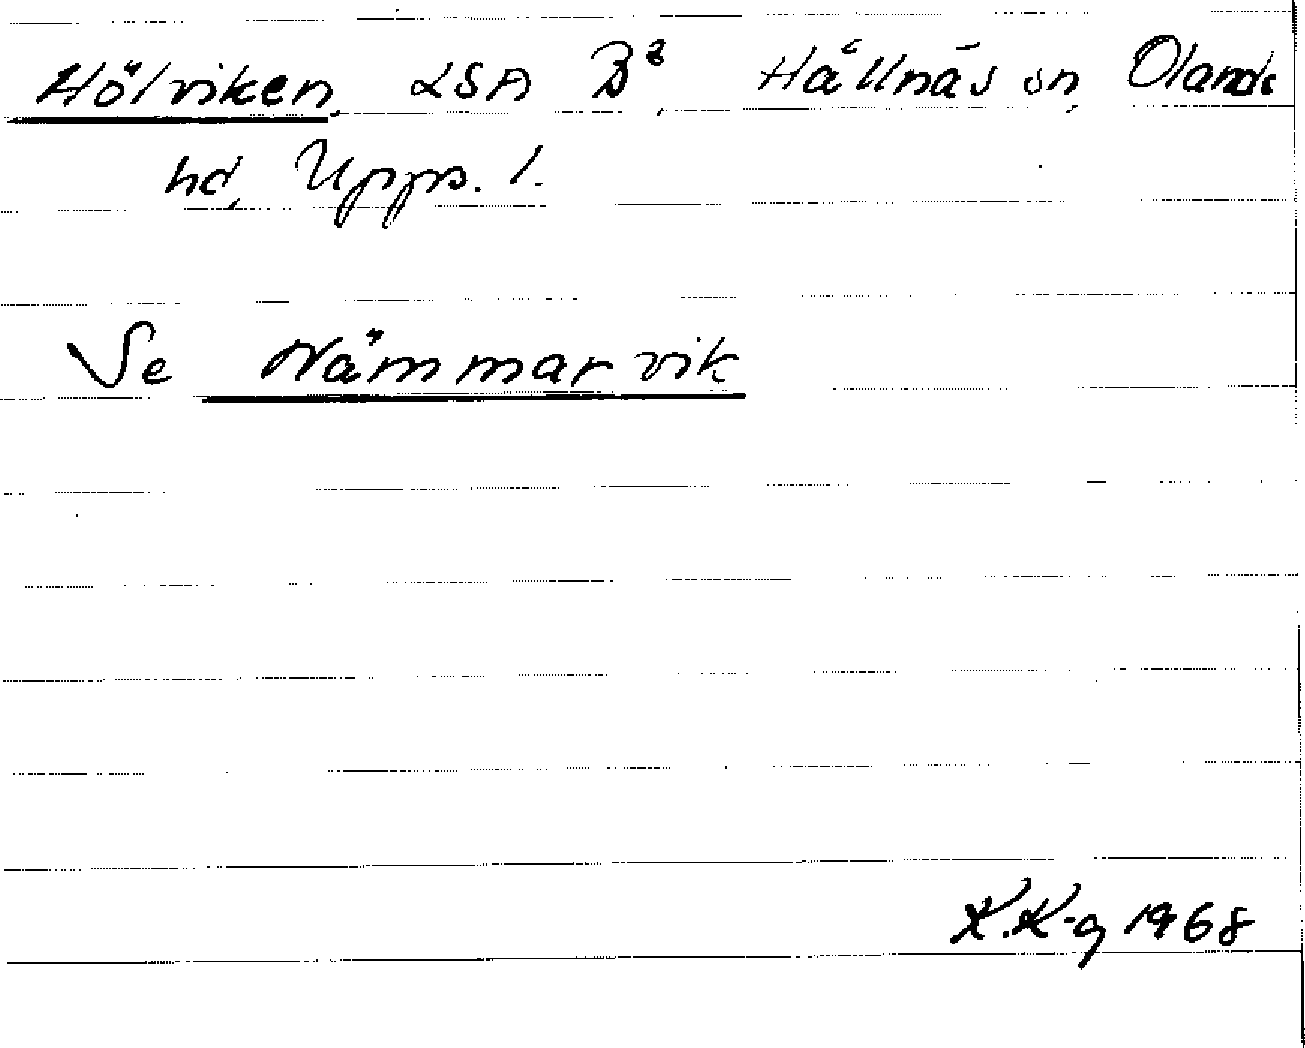 Hölviken, LSA B², Hållnäs sn, Olands
hd, Upps. l.
Se Nämmarvik
K.K-g 1968